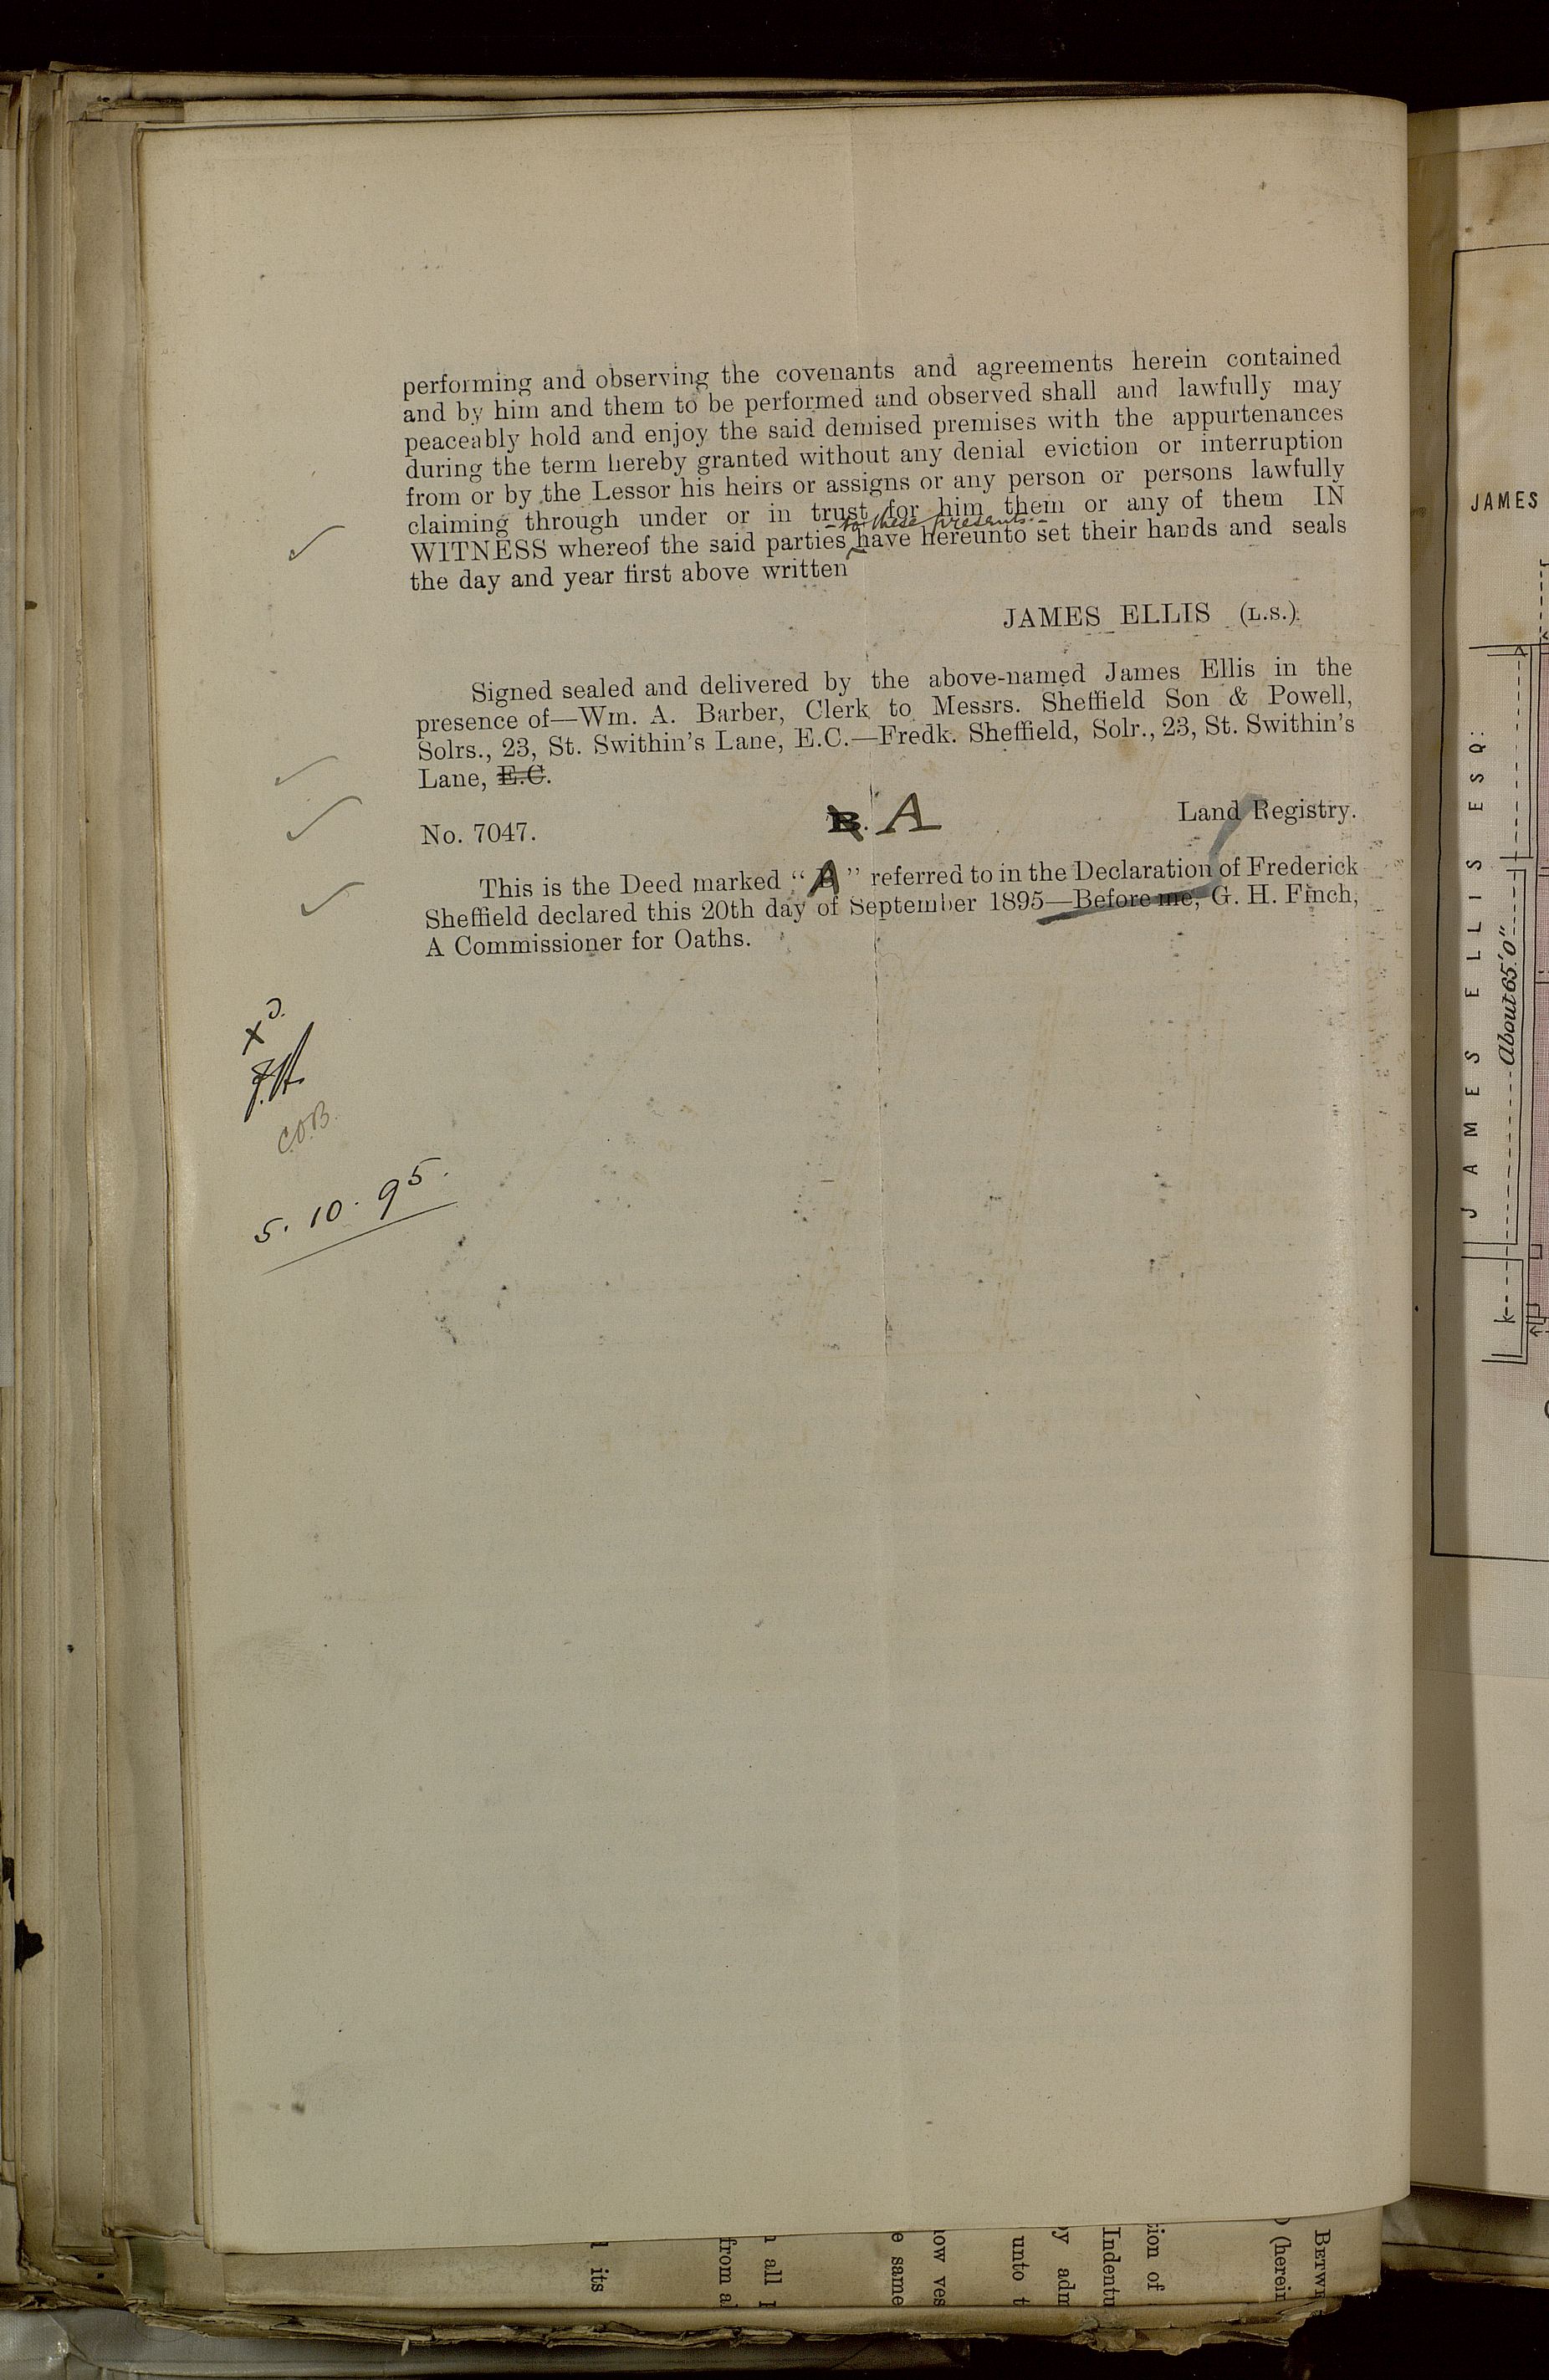 performing and observing the covenants and agreements herein contained
and by him and them to be performed and observed shall and lawfully may
peaceably hold and enjoy the said demised premises with the appurtenances
during the term hereby granted without any denial eviction or interruption
from or by the Lessor his heirs or assigns or any person or persons lawfully
claiming through under or in trust for him them or any of them IN
to these presents
WITNESS whereof the said parties have hereunto set their hands and seals
the day and year first above written
JAMES ELLIS (L.S.)
Signed sealed and delivered by the above-named James Ellis in the
presence of—Wm. A. Barber, Clerk to Messrs. Sheffield Son & Powell,
Solrs., 23, St. Swithin's Lane, E.C.—Fredk. Sheffield, Solr., 23, St. Swithin's
Lane, E.C.
No. 7047. B. A Land Registry.
This is the Deed marked "A" referred to in the Declaration of Frederick
Sheffield declared this 20th day of September 1895—Before me, G. H. Finch,
A Commissioner for Oaths.
C.O.B.
5. 10. 95.
JAMES
JAMES ELLIS ESQ:
About 65' 0"
its
from a
all
e same
ow ves
unto t
y adm
Indentu
ion of
(herein
BETWE